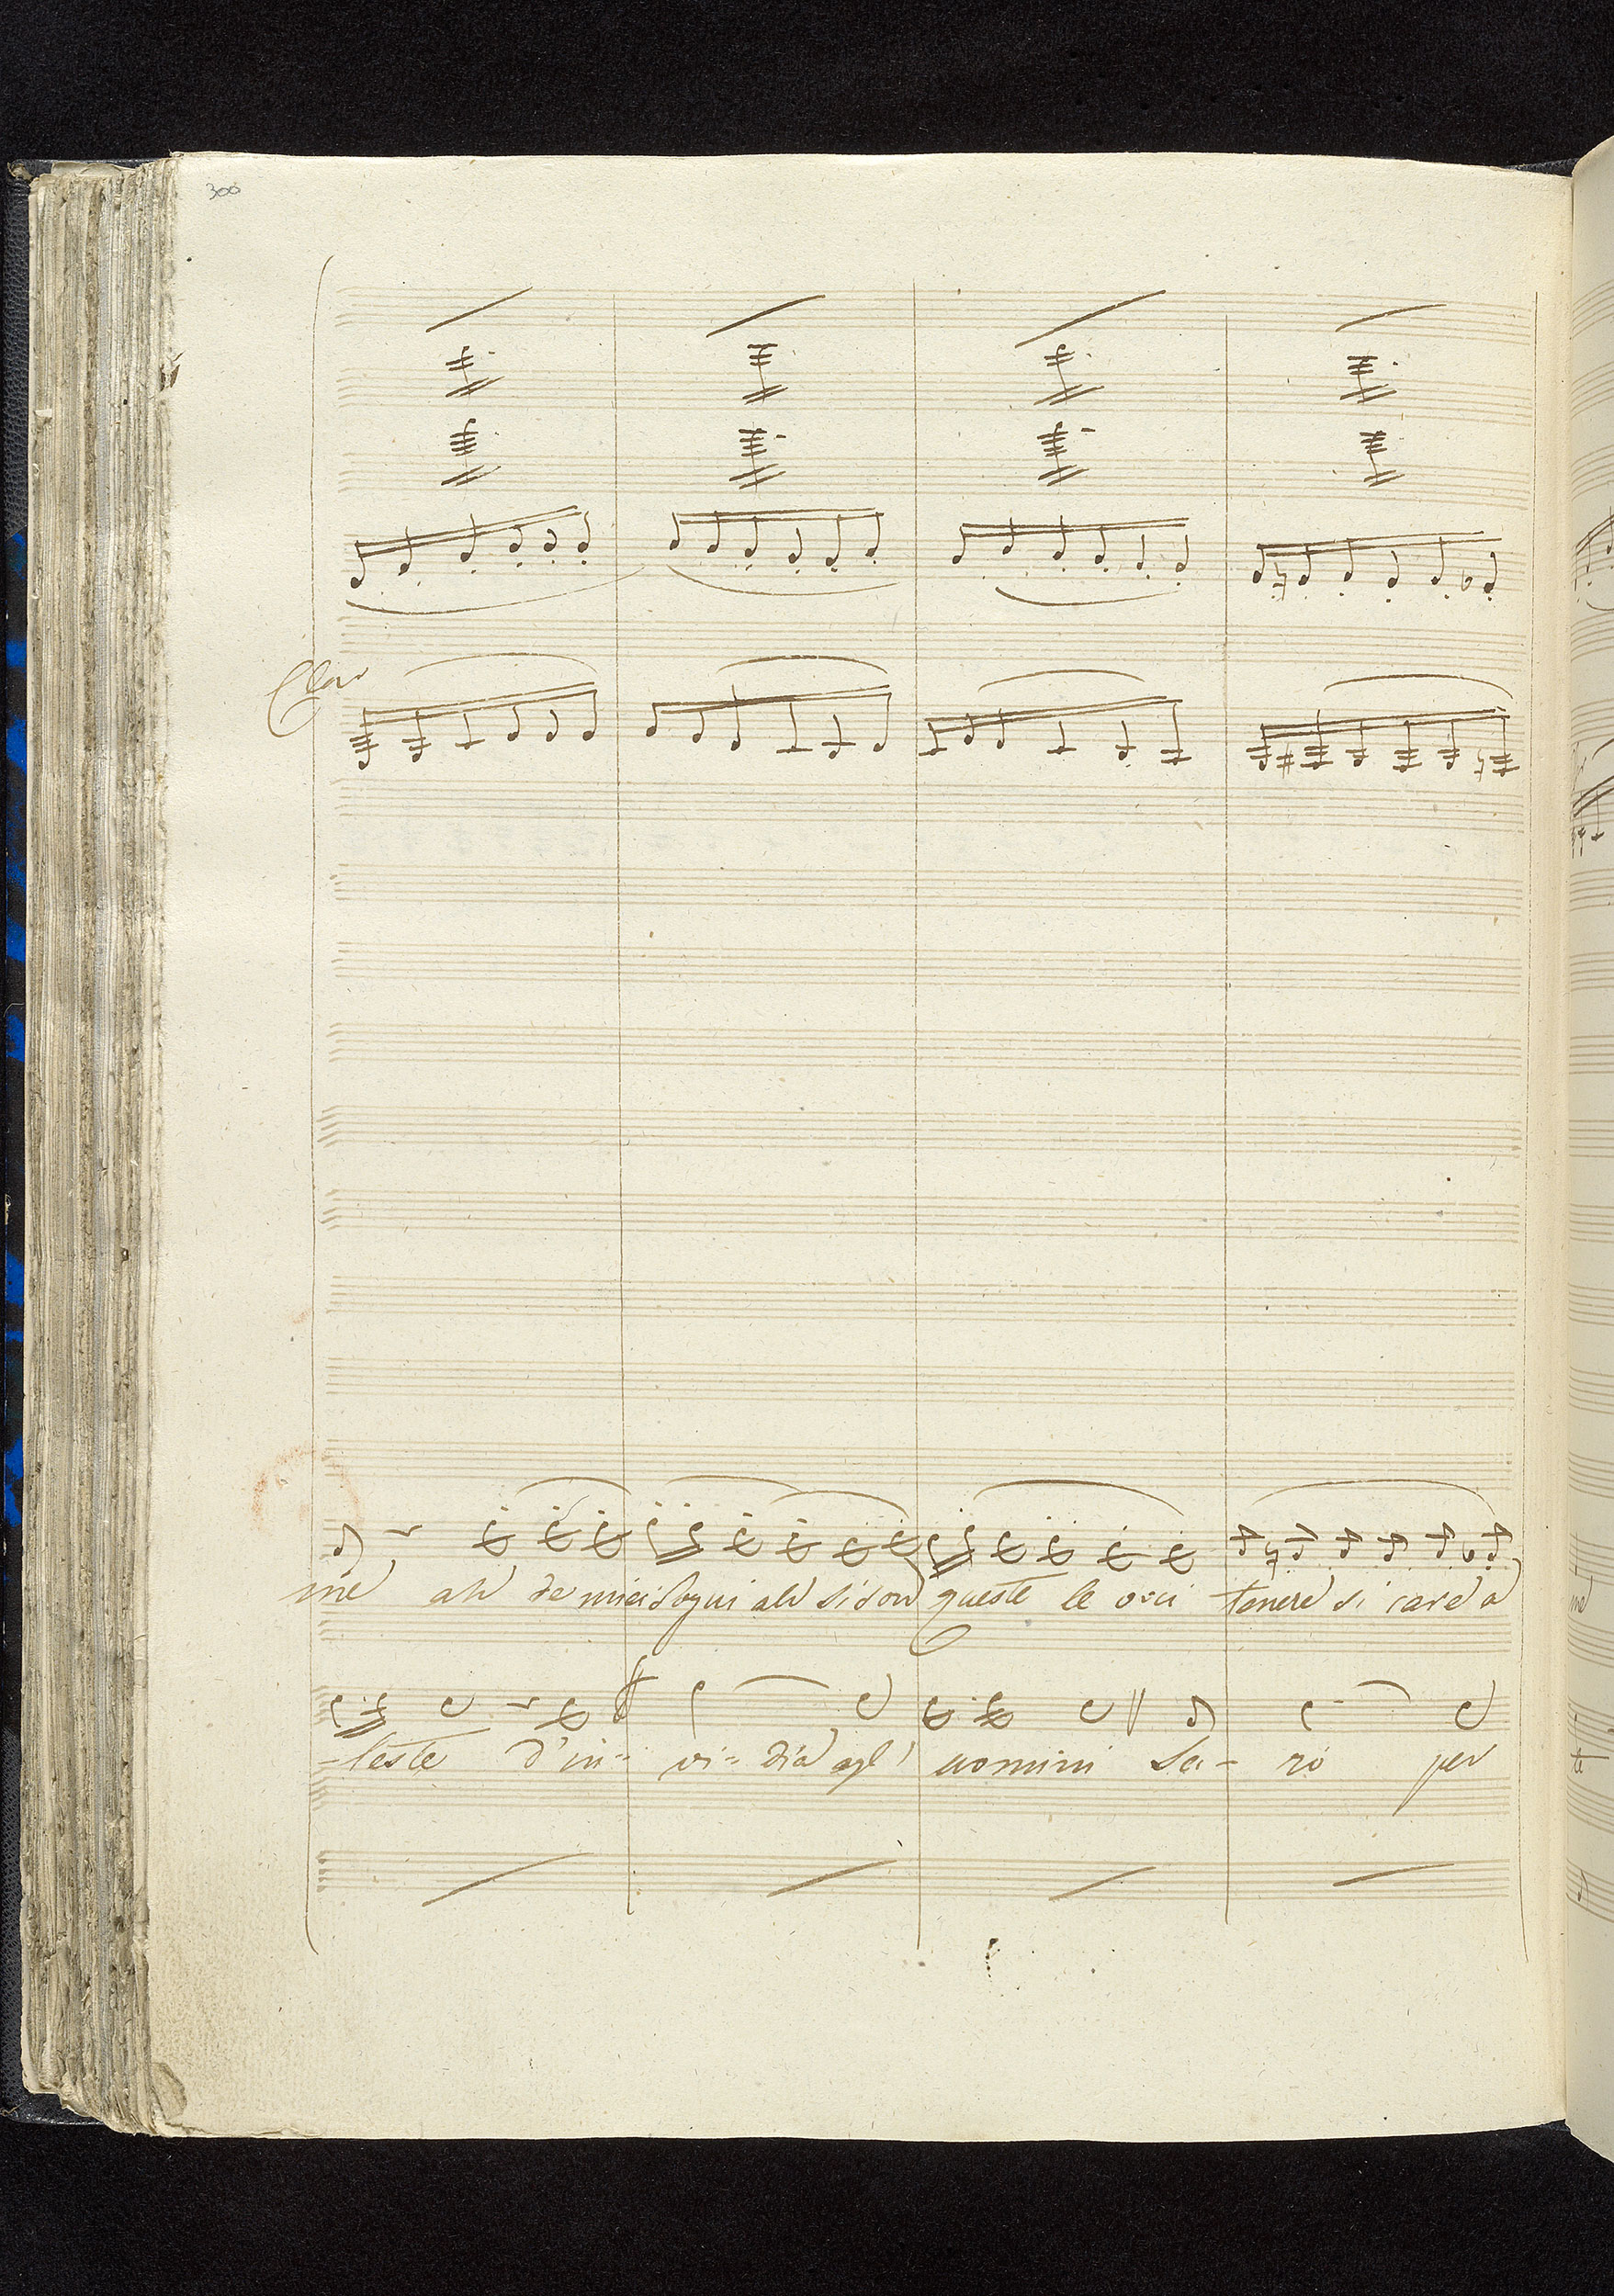 300
Clar
me ah de miei sogni ah si son queste le voci tenere si care a
-leste d'in- vi- dia agl' uomini sa- rò per